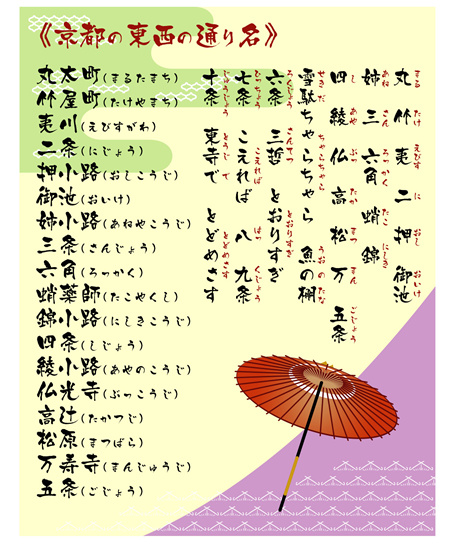 《京都の東西の通り名》
丸 竹 夷 二 押 御池
まる たけ えびす に おし おいけ
姉 三 六角 蛸 錦
あね さん ろっかく たこ にしき
四 綾 仏 高 松 万 五条
し あや ぶっ たか まつ まん ごじょう
雪駄ちゃらちゃら 魚の棚
せきだ ちゃらちゃら うおのたな
六条 三哲 とおりすぎ
ろくじょう さんてつ とおりすぎ
七条 こえれば 八 九条
ひちょう こえれば はつ くじょう
十条 東寺で とどめさす
じゅうじょう とうじ で とどめさす
丸太町(まるたまち)
竹屋町(たけやまち)
夷川(えびすがわ)
二条(にじょう)
押小路(おしこうじ)
御池(おいけ)
姉小路(あねやこうじ)
三条(さんじょう)
六角(ろっかく)
蛸薬師(たこやくし)
錦小路(にしきこうじ)
四条(しじょう)
綾小路(あやのこうじ)
仏光寺(ぶっこうじ)
高辻(たかつじ)
松原(まつばら)
万寿寺(まんじゅうじ)
五条(ごじょう)